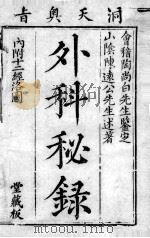 洞天奥旨
會稽陶尚白先生鑒定
山陰陳遠公先生述著
外科秘錄
內附十二經絡圖
堂藏板